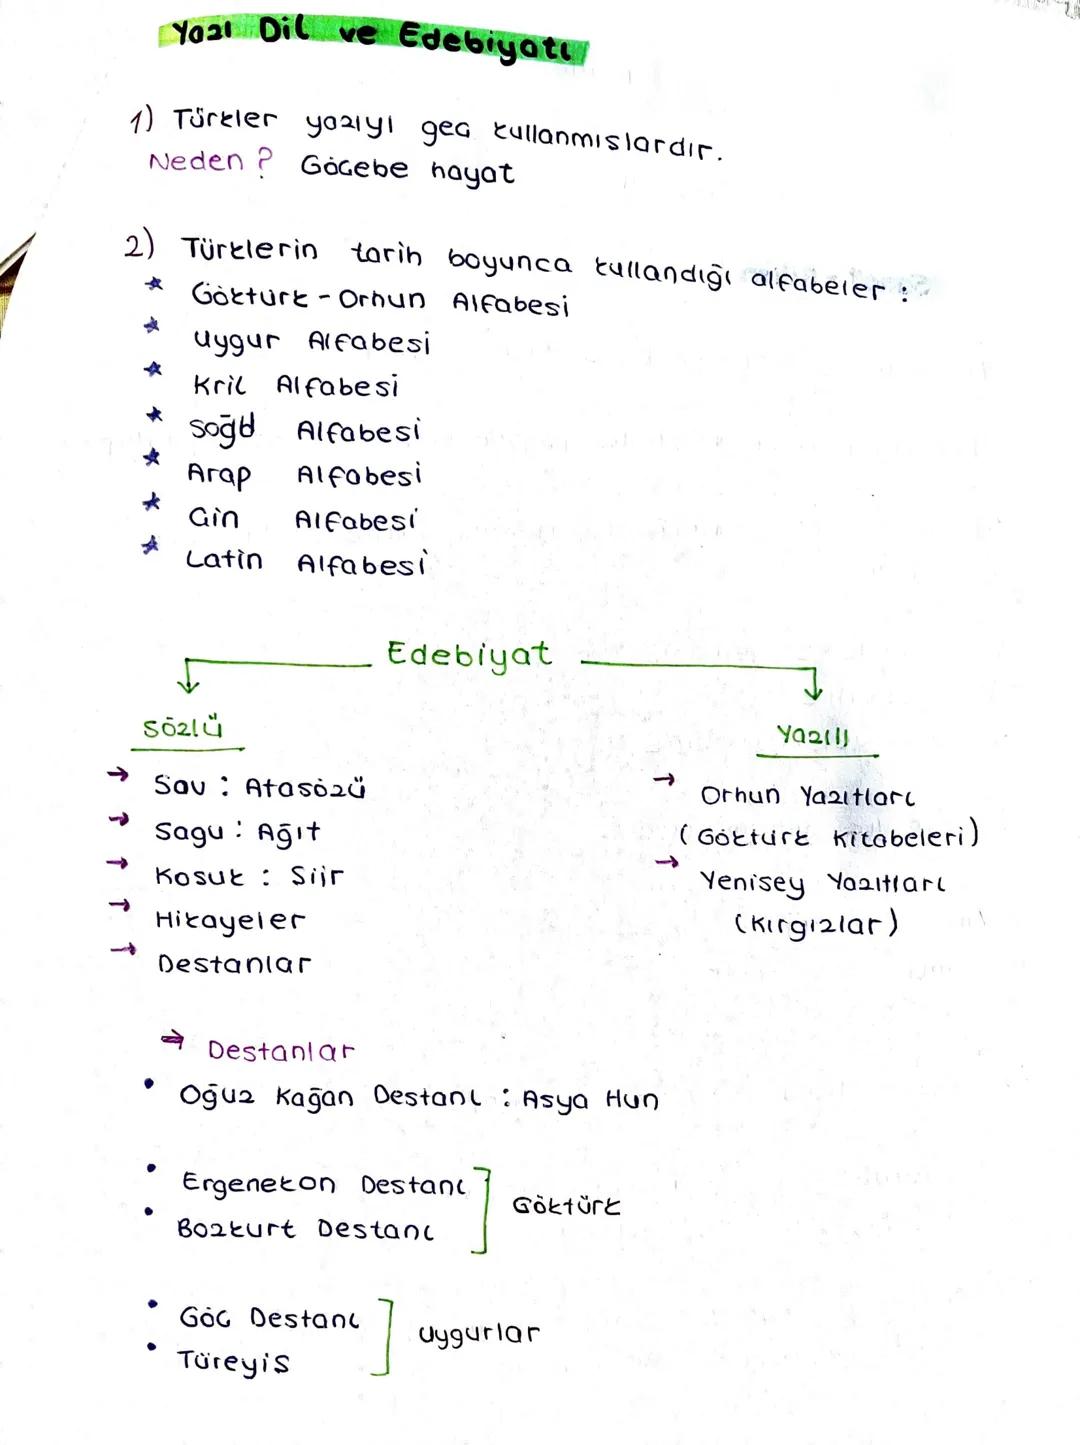 Yazı Dil ve Edebiyatı
1) Türkler yazıyı geç kullanmıslardır.
Neden? Göçebe hayat
2) Türklerin tarih boyunca kullandığı alfabeler :
* Göktürk - Orhun Alfabesi
* Uygur Alfabesi
* Kril Alfabesi
* Soğd Alfabesi
* Arap Alfabesi
* Çin Alfabesi
* Latin Alfabesi
Edebiyat
Sözlü
→ Sav : Atasözü
→ Sagu : Ağıt
→ Kosuk : Siir
→ Hikayeler
→ Destanlar
Yazılı
→ Orhun Yazıtları
(Göktürk Kitabeleri)
→ Yenisey Yazıtları
(Kırgızlar)
⇒ Destanlar
• Oğuz Kağan Destanı : Asya Hun
• Ergenekon Destanı
• Bozkurt Destanı
Göktürk
• Göç Destanı
• Türeyis
Uygurlar